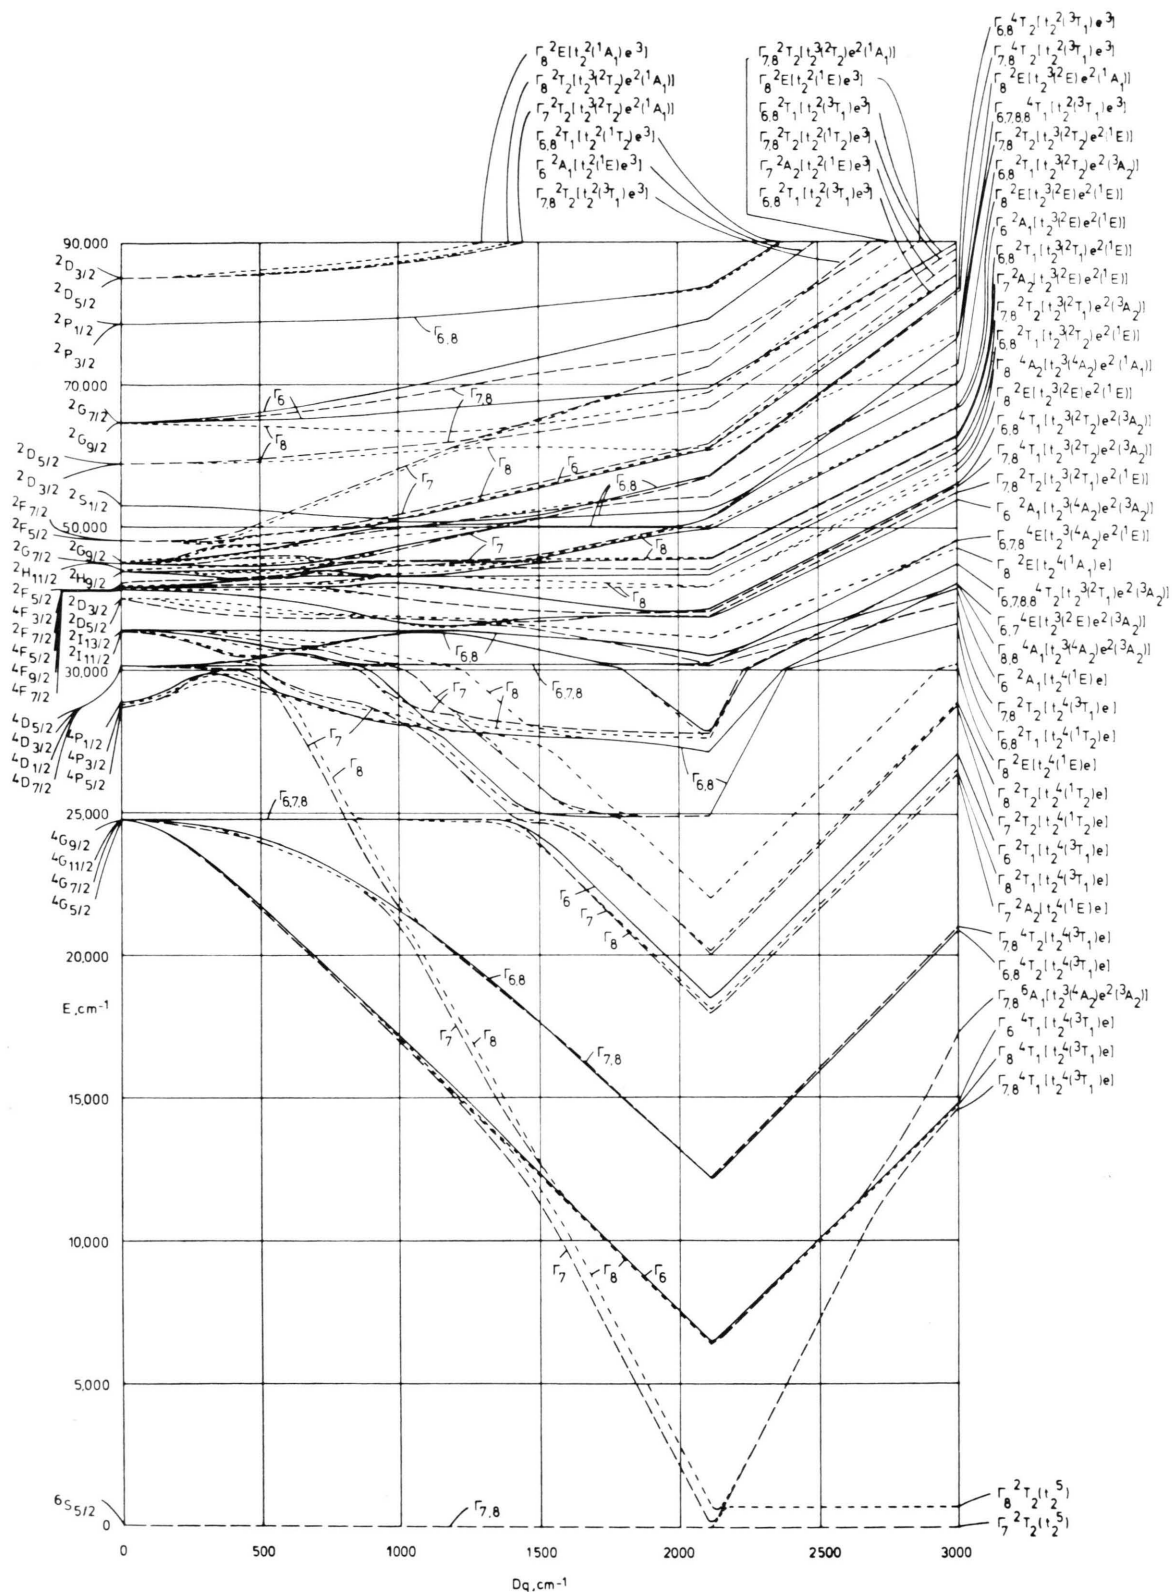 Γ8 ²E[t₂²(¹A₁)e³]
Γ8 ²T₂[t₂³(²T₂)e²(¹A₁)]
Γ7 ²T₂[t₂³(²T₂)e²(¹A₁)]
Γ6,8 ²T₁[t₂²(¹T₂)e³]
Γ6 ²A₁[t₂²(¹E)e³]
Γ7,8 ²T₂[t₂²(³T₁)e³]
Γ7,8 ²T₂[t₂³(²T₂)e²(¹A₁)]
Γ8 ²E[t₂²(¹E)e³]
Γ6,8 ²T₁[t₂²(³T₁)e³]
Γ7,8 ²T₂[t₂²(¹T₂)e³]
Γ7 ²A₂[t₂²(¹E)e³]
Γ6,8 ²T₁[t₂²(³T₁)e³]
Γ6,8 ⁴T₂[t₂²(³T₁)e³]
Γ7,8 ⁴T₂[t₂²(³T₁)e³]
Γ8 ²E[t₂³(²E)e²(¹A₁)]
Γ6,7,8,8 ⁴T₁[t₂²(³T₁)e³]
Γ7,8 ²T₂[t₂³(²T₂)e²(¹E)]
Γ6,8 ²T₁[t₂³(²T₂)e²(³A₂)]
Γ8 ²E[t₂³(²E)e²(¹E)]
Γ6 ²A₁[t₂³(²E)e²(¹E)]
Γ6,8 ²T₁[t₂³(²T₁)e²(¹E)]
Γ7 ²A₂[t₂³(²E)e²(¹E)]
Γ7,8 ²T₂[t₂³(²T₁)e²(³A₂)]
Γ6,8 ²T₁[t₂³(²T₂)e²(¹E)]
Γ8 ⁴A₂[t₂³(⁴A₂)e²(¹A₁)]
Γ8 ²E[t₂³(²E)e²(¹E)]
Γ6,8 ⁴T₁[t₂³(²T₂)e²(³A₂)]
Γ7,8 ⁴T₁[t₂³(²T₂)e²(³A₂)]
Γ7,8 ²T₂[t₂³(²T₁)e²(¹E)]
Γ6 ²A₁[t₂³(⁴A₂)e²(³A₂)]
Γ6,7,8 ⁴E[t₂³(⁴A₂)e²(¹E)]
Γ8 ²E[t₂⁴(¹A₁)e]
Γ6,7,8,8 ⁴T₂[t₂³(²T₁)e²(³A₂)]
Γ6,7 ⁴E[t₂³(²E)e²(³A₂)]
Γ8,8 ⁴A₁[t₂³(⁴A₂)e²(³A₂)]
Γ6 ²A₁[t₂⁴(¹E)e]
Γ7,8 ²T₂[t₂⁴(³T₁)e]
Γ6,8 ²T₁[t₂⁴(¹T₂)e]
Γ8 ²E[t₂⁴(¹E)e]
Γ8 ²T₂[t₂⁴(¹T₂)e]
Γ7 ²T₂[t₂⁴(¹T₂)e]
Γ6 ²T₁[t₂⁴(³T₁)e]
Γ8 ²T₁[t₂⁴(³T₁)e]
Γ7 ²A₂[t₂⁴(¹E)e]
Γ7,8 ⁴T₂[t₂⁴(³T₁)e]
Γ6,8 ⁴T₂[t₂⁴(³T₁)e]
Γ7,8 ⁶A₁[t₂³(⁴A₂)e²(³A₂)]
Γ6 ⁴T₁[t₂⁴(³T₁)e]
Γ8 ⁴T₁[t₂⁴(³T₁)e]
Γ7,8 ⁴T₁[t₂⁴(³T₁)e]
Γ8 ²T₂(t₂⁵)
Γ7 ²T₂(t₂⁵)
90,000
²D3/2
²D5/2
²P1/2
²P3/2
70,000
²G7/2
²G9/2
²D5/2
²D3/2
²S1/2
²F7/2
50,000
²F5/2
²G7/2
²G9/2
²H11/2
²H9/2
²F5/2
⁴F3/2
²D3/2
²F7/2
²D5/2
⁴F5/2
²I13/2
⁴F9/2
²I11/2
⁴F7/2
30,000
⁴D5/2
⁴D3/2
⁴D1/2
⁴D7/2
⁴P1/2
⁴P3/2
⁴P5/2
25,000
⁴G9/2
⁴G11/2
⁴G7/2
⁴G5/2
20,000
E,cm⁻¹
15,000
10,000
5,000
⁶S5/2
0
Γ6,8
Γ6
Γ7,8
Γ8
Γ8
Γ6
Γ7
Γ6,8
Γ7
Γ8
Γ8
Γ6,8
Γ6,7,8
Γ7
Γ8
Γ7
Γ8
Γ6,8
Γ6,7,8
Γ6
Γ7
Γ8
Γ6,8
Γ7,8
Γ7
Γ8
Γ7
Γ8
Γ6
Γ7,8
0
500
1000
1500
2000
2500
3000
Dq,cm⁻¹